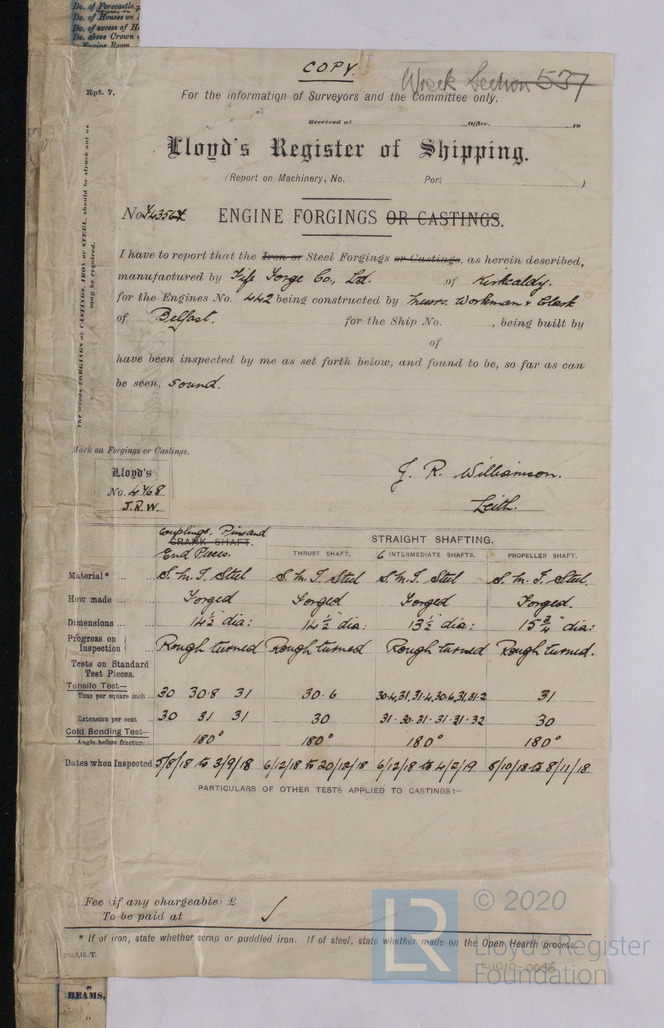 Do. of Forecastle
Do. of Houses on
Do. of excess of H
Do. above Crown of
Engine Room
COPY.
Wreck Section 537
Rpt. 7.
For the information of Surveyors and the Committee only.
Received at Office, 19
Lloyd's Register of Shipping.
(Report on Machinery, No. Port )
No. ENGINE FORGINGS OR CASTINGS.
The words FORGINGS or CASTINGS, IRON or STEEL, should be struck out as may be required.
I have to report that the Iron or Steel Forgings or Castings, as herein described,
manufactured by Fife Forge Co, Ltd. of Kirkcaldy.
for the Engines No. 442 being constructed by Messrs Workman & Clark
of Belfast. for the Ship No. , being built by
of
have been inspected by me as set forth below, and found to be, so far as can
be seen, sound.
Mark on Forgings or Castings.
Lloyd's
No. 4468
J.R.W.
J. R. Williamson.
Leith.
Couplings, Pins and
CRANK SHAFT.
End Pieces.
STRAIGHT SHAFTING.
THRUST SHAFT. 6 INTERMEDIATE SHAFTS. PROPELLER SHAFT.
Material* ... S. M. I. Steel S. M. I. Steel S. M. I. Steel S. M. I. Steel.
How made ... Forged Forged Forged Forged.
Dimensions ... 14½" dia: 14½" dia: 13½" dia: 15¾" dia:
Progress on Inspection Rough turned Rough turned Rough turned Rough turned.
Tests on Standard
Test Pieces.
Tensile Test—
Tons per square inch ... 30 30.8 31 30.6 30.4, 31, 31.4, 30.6, 31, 31.2 31
Extension per cent 30 31 31 30 31. 30. 31. 31. 31. 32 30
Cold Bending Test—
Angle before fracture 180° 180° 180° 180°
Dates when Inspected 5/8/18 to 3/9/18 6/12/18 to 20/12/18 6/12/18 to 4/2/19 8/10/18 to 8/11/18.
PARTICULARS OF OTHER TESTS APPLIED TO CASTINGS:—
Fee (if any chargeable) £
To be paid at
* If of iron, state whether scrap or puddled iron. If of steel, state whether made on the Open Hearth process.
LR
© 2020
Lloyd's Register
Foundation
BEAMS,